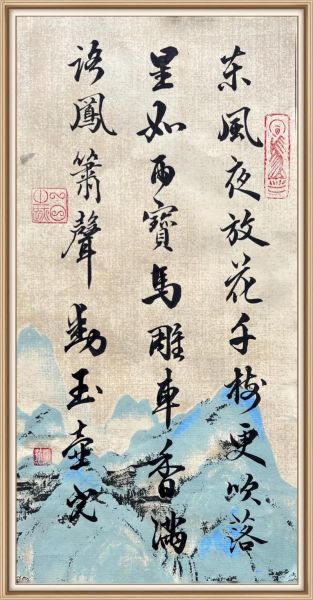 东風夜放花千树更吹落
星如雨寶馬雕車香滿
路鳳簫聲動玉壺光